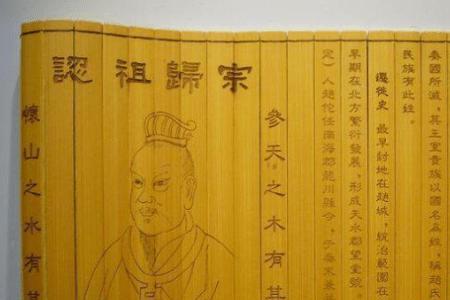 認祖歸宗
秦國所滅，其王室貴族以國名為姓，稱趙氏
民族有此姓。
遷徙史 最早封地在趙城，統治範圍在
早期在北方繁衍發展，形成天水郡望堂號。
定）人趙佗任南海郡龍川縣令，于秦末兼并
參天之木有其
懷山之水有其